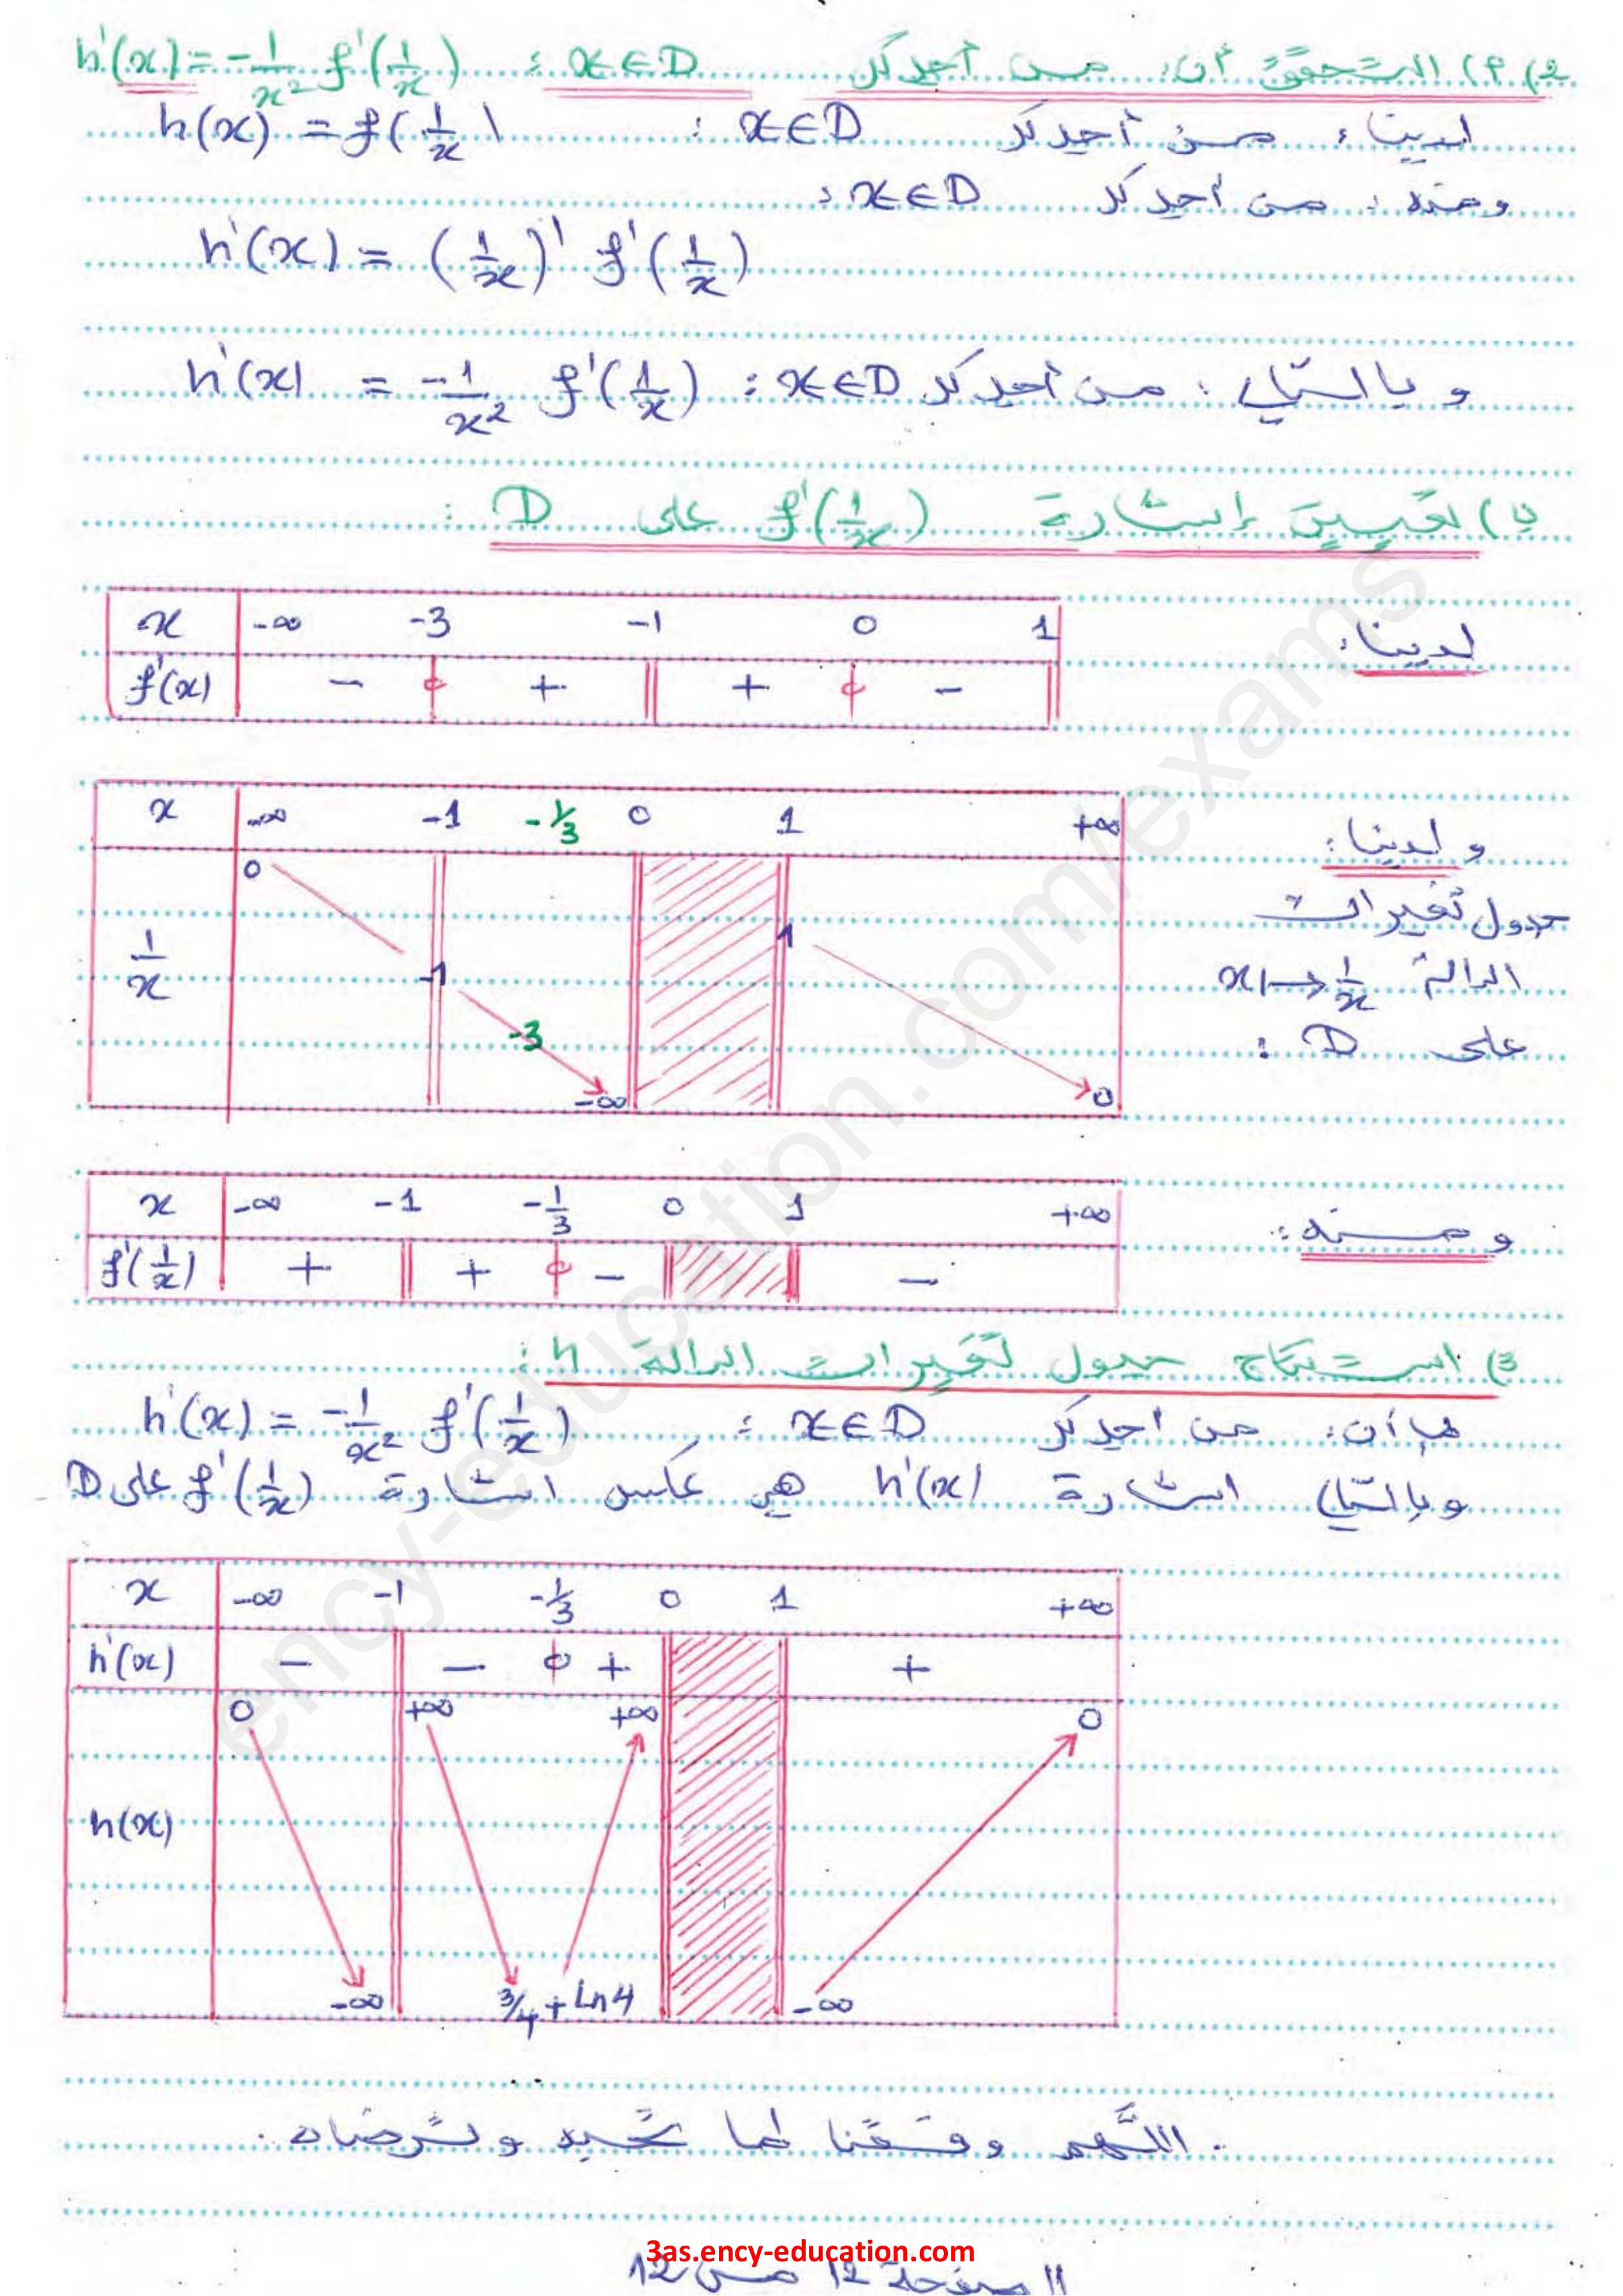 2) أ) التحقق أن: من أجل كل x∈D : h'(x) = -1/x² f'(1/x)
لدينا: من أجل كل x∈D : h(x) = f(1/x)
ومنه: من أجل كل x∈D :
h'(x) = (1/x)' f'(1/x)
وبالتالي: من أجل كل x∈D : h'(x) = -1/x² f'(1/x)
ب) تعيين إشارة f'(1/x) على D :
لدينا:
x -∞ -3 -1 0 1
f'(x) - 0 + || + 0 - ||
ولدينا:
جدول تغيرات
الدالة x↦1/x
على D :
x -∞ -1 -1/3 0 1 +∞
1/x 0 -1 -3 -∞ 1 0
ومنه:
x -∞ -1 -1/3 0 1 +∞
f'(1/x) + || + 0 - || || -
3) استنتاج جدول تغيرات الدالة h :
بما أن: من أجل كل x∈D : h'(x) = -1/x² f'(1/x)
وبالتالي اشارة h'(x) هي عكس اشارة f'(1/x) على D
x -∞ -1 -1/3 0 1 +∞
h'(x) - || - 0 + || || +
h(x) 0 -∞ +∞ 3/4 + ln4 +∞ -∞ 0
اللَّهم وفقنا لما تحبه وترضاه.
الصفحة 12 من 12
3as.ency-education.com
ency-education.com/exams